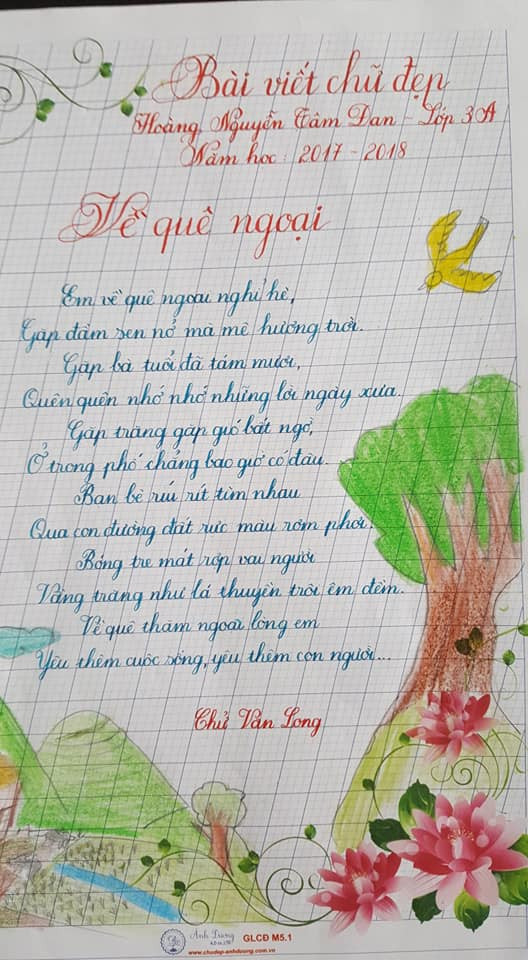 Bài viết chữ đẹp
Hoàng Nguyễn Tâm Đan - Lớp 3A
Năm học : 2017 - 2018
Về quê ngoại
Em về quê ngoại nghỉ hè,
Gặp đầm sen nở mà mê hương trời.
Gặp bà tuổi đã tám mươi,
Quên quên nhớ nhớ những lời ngày xưa.
Gặp trăng gặp gió bất ngờ,
Ở trong phố chẳng bao giờ có đâu.
Bạn bè ríu rít tìm nhau
Qua con đường đất rực màu rơm phơi.
Bóng tre mát rợp vai người
Vầng trăng như lá thuyền trôi êm đềm.
Về quê thăm ngoại lòng em
Yêu thêm cuộc sống, yêu thêm con người...
Chử Văn Long
Ánh Dương
GLCĐ M5.1
www.chudep-anhduong.com.vn